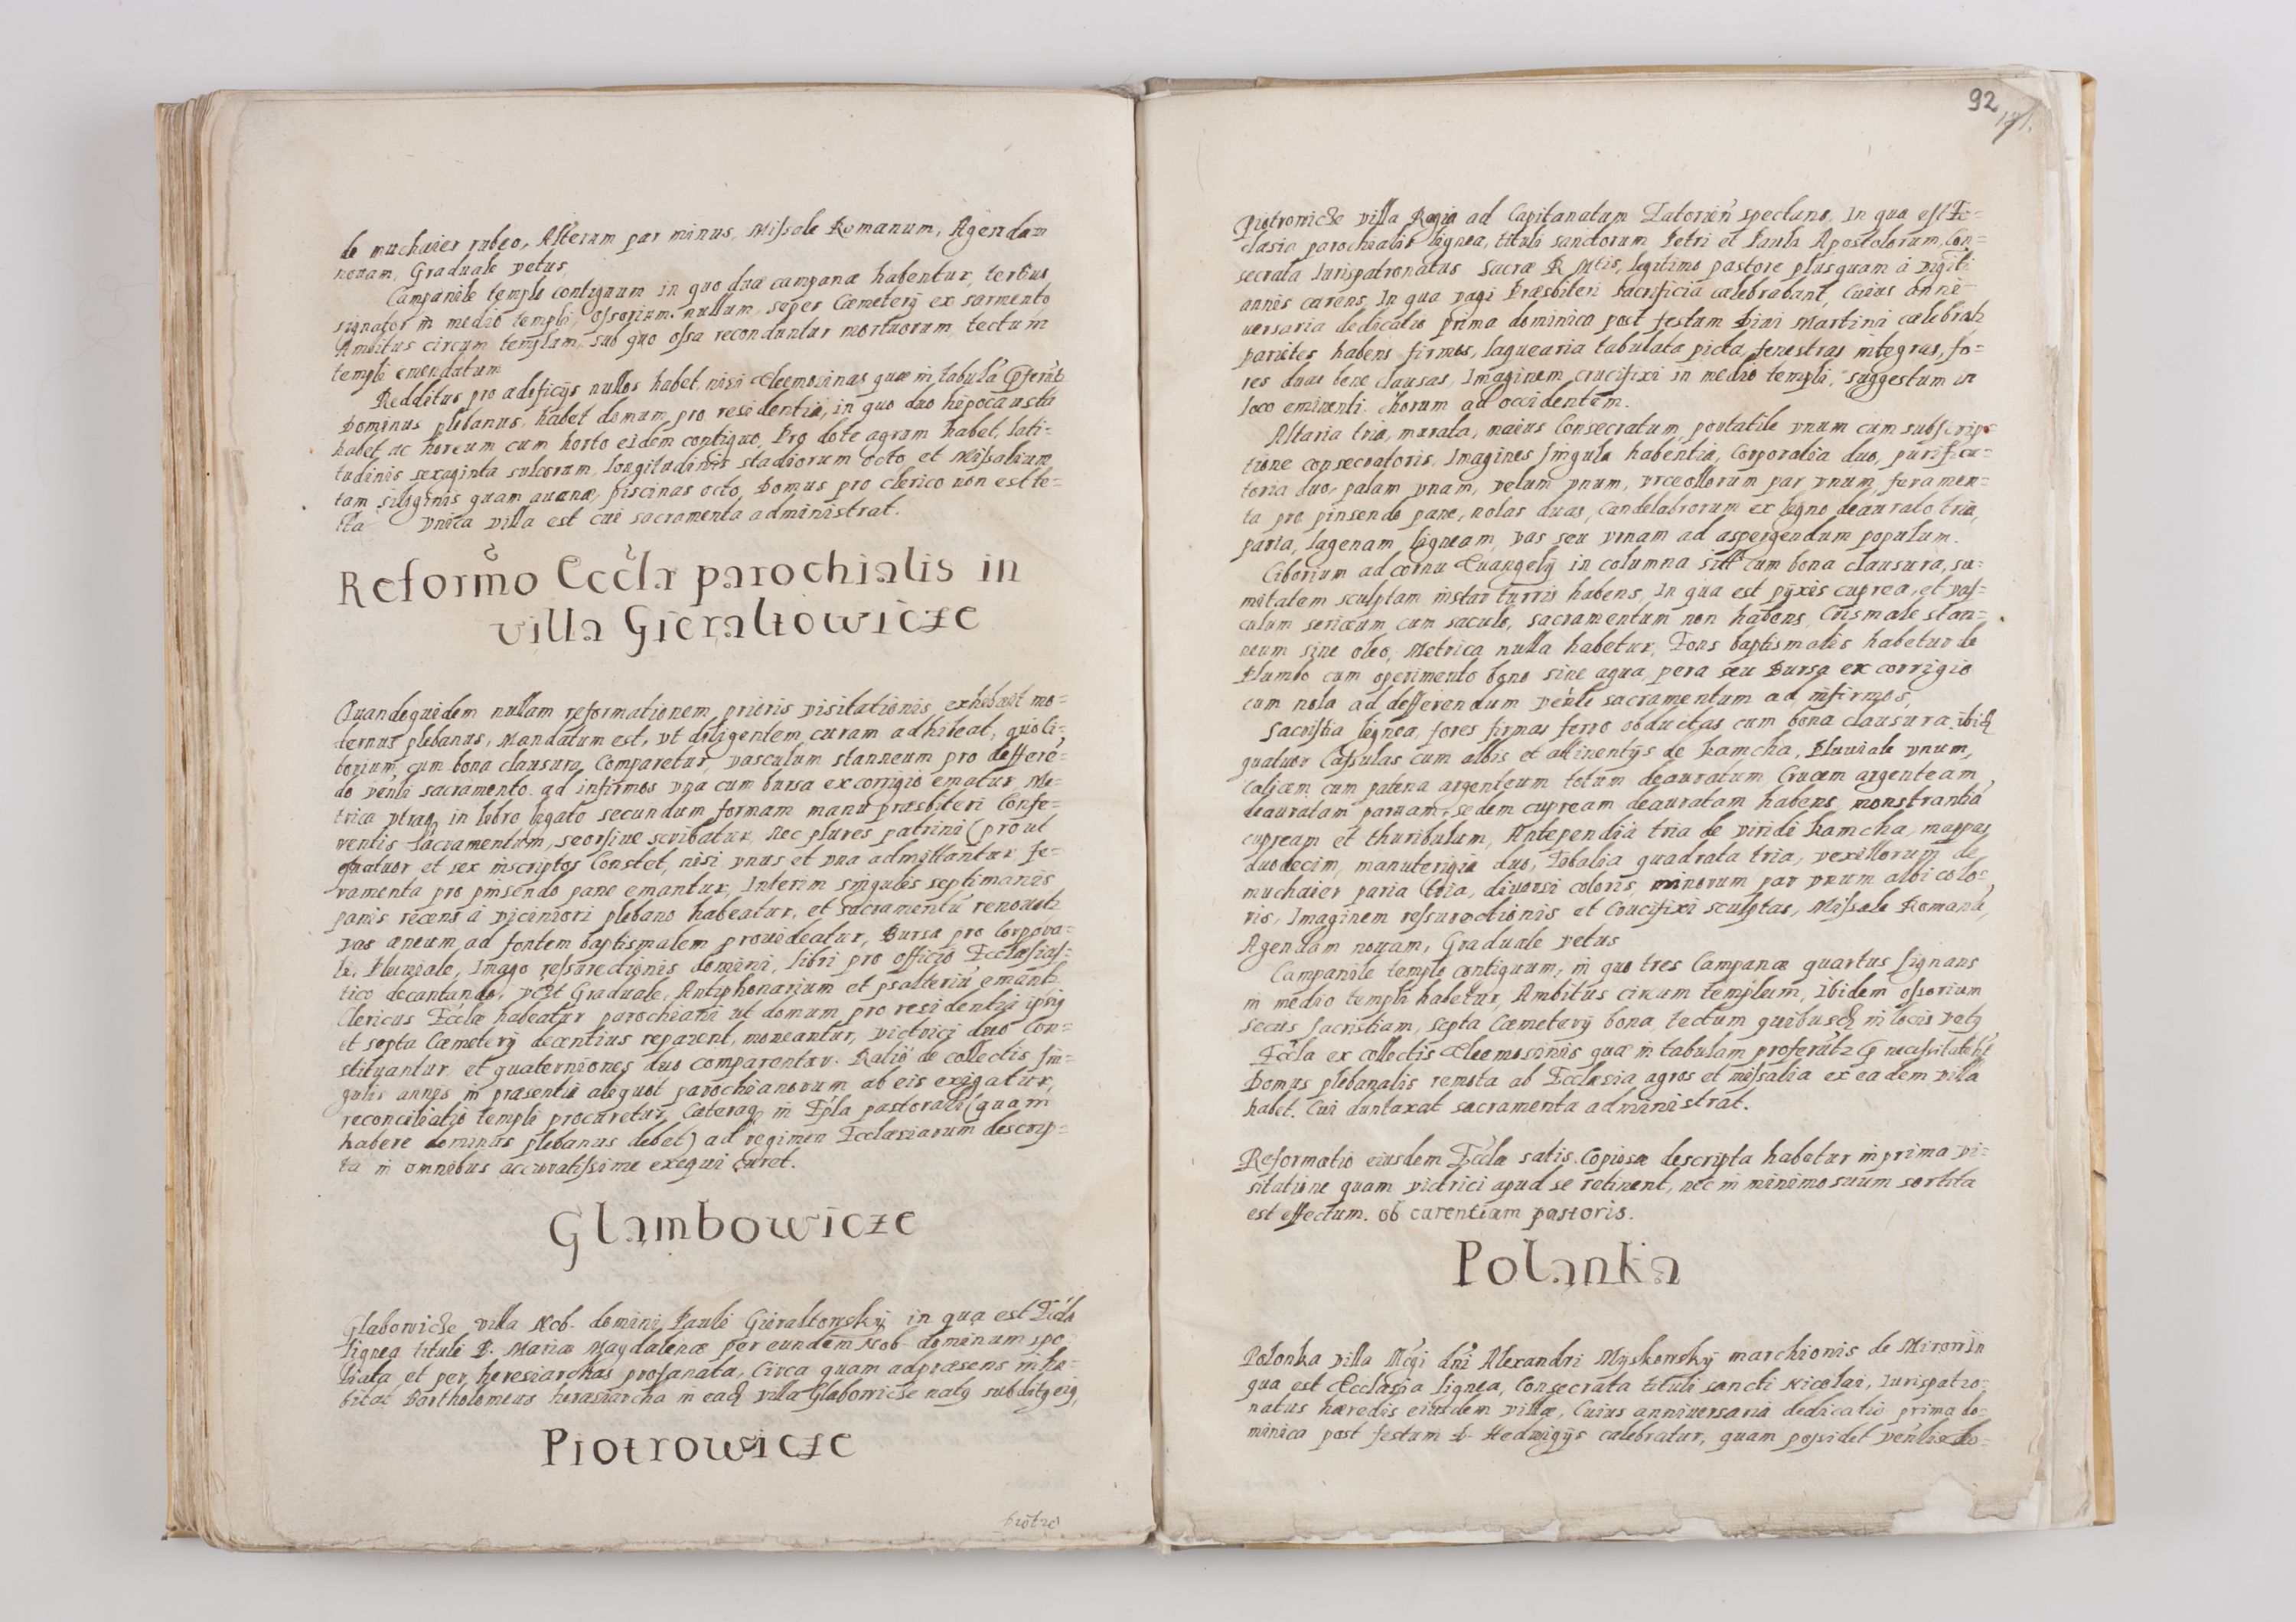 de muchaier rubeo, Alterum par minus, Missale Romanum, Agendam
nouam, Graduale vetus,
Campanile templo contiguum in quo duæ campanæ habentur, tertius
signator in medio templi, ossorium nullum, sepes Cæmeterij ex sarmento
Ambitus circum templum, sub quo ossa reconduntur mortuorum, tectum
templi emendatum
Redditus pro ædificijs nullos habet, nisi eleemosinas quæ in tabulā
Dominus plebanus, habet domum pro residentia, in quo duo hipocausta
habet ac horeum cum horto eidem contiguo, Pro dote agrum habet, lati=
tudinis sexaginta sulcorum, longitudinis stadiorum octo et Missalium
tam siliginis quam auenæ, piscinas octo, Domus pro clerico non est te=
cta vnica villa est cui sacramenta administrat.
Reformo Eccla parochialis in
villa Gieraltowicze
Quandoquidem nullam reformationem prioris visitationis exhibuit mo=
dernus plebanus, Mandatum est, vt diligentem curam adhibeat, quo Ci=
borium cum bona clausura, Comparetur, vasculum stanneum pro defferē=
do venli sacramento ad infirmos vna cum bursa ex corrigio ematur, Me=
trica vtraq in libro ligato secundum formam manu præsbiteri Confe=
rentis sacramentum, seorsiue scribatur, Nec plures patrini (prout
quatuor et sex inscriptos Constet, nisi vnus et vna admittantur fe=
ramenta pro pinsendo pane emantur, Interim singulis septimanis
panis recens à viciniori plebano habeatur, et sacramentū renouetz
vas æneum ad fontem baptismalem prouideatur, Bursa pro Corpora=
li, Pluuiale, Imago ressurectionis domini, libri pro officio Ecclesias=
tico decantando, vt Graduale, Antiphonarium et psalteriū emantz
Clericus Eccla habeatur parochiani ut domum pro residentia ipsig
et septa Cæmeterij decentius reparent, moneantur, victrici duo Con=
stituantur, et quaterniones duo comparentur. Ratio de collectis sin=
gulis annis in præsentia aliquot parochianorum ab eis exigatur,
reconciliatio templi procuretur, Cæteraq in Epla pastorali (quam
habere dominus plebanus debet) ad regimen Ecclesiarum descrip=
ta in omnibus accuratissime exequi curet.
Glambowicze
Glabowicze villa Nob. domini Pauli Gieraltowskij in qua est Eccla
lignea tituli D. Mariæ Magdalenæ per eundem Nob. dominum spo=
liata et per heresiarchas profanata, Circa quam ad præsens inha=
bitat Bartholomeus heresiarcha in eadē villa Glabowicze natg subditg eig,
Piotrowicze
Piotro
92
Piotrowicze villa Regia ad Capitanatum Zatorien spectans, In qua est Ec=
clæsia parochialis lignea, tituli sanctorum Petri et Pauli Apostolorum, Con=
secrata Iurispatronatus Sacræ R Mtis, legitimo pastore plusquam à viginti
annis carens, In qua vagi Præsbiteri Sacrificia cælebrabant, Cuius anni=
uersaria dedicatio prima dominica post festum Diui Martini cælebratz
parietes habens firmos, laquearia tabulata picta, fenestras integras, fo=
res duas bene clausas, Imaginem crucifixi in medio templi, suggestum in
loco eminenti, Chorum ad occidentem.
Altaria tria, murata, maius Consecratum portatile vnum cum subscrip=
tione consecratoris, Imagines singula habentia, Corporalia duo, purifica=
toria duo, palam vnam, velum vnum, vrceollorum par vnum, feramen=
ta pro pinsendo pane, nolas duas, Candelabrorum ex ligno deaurato tria
paria, lagenam ligneam, vas seu vrnam ad aspergendum populum.
Ciborium ad cornu Euangelij in columna sitū cum bona clausura, su=
mitatem sculptam instar turris habens, In qua est pyxis cuprea, et vas=
culum sericeum cum sacculo, sacramentum non habens, Crismale stan=
neum sine oleo, Metrica nulla habetur, Fons baptismalis habetur de
Plumbo cum operimento bono sine aqua, pera seu Bursa ex corrigio
cum nola ad defferendum venle sacramentum ad infirmos,
Sacristia lignea, fores firmas ferro obductas cum bona clausura, ibidē
quatuor Cassulas cum albis et attinentijs de kamcha, Pluuiale vnum,
Calicem cum patena argenteum totum deauratum, Crucem argenteam
deauratam paruam, sedem cupream deauratam habens, monstrantiā
cupream et thuribulum, Antependia tria de viridi kamcha, mappas
duodecim, manutergia duo, Tobalia quadrata tria, vexillorum de
muchaier paria tria, diuersi coloris, minorum par vnum albi colo=
ris, Imaginem ressurectionis et Crucifixi sculptas, Missale Romanū,
Agendam nouam, Graduale vetus
Campanile templo contiguum, in quo tres Campanæ quartus signans
in medio templi habetur, Ambitus circum templum, Ibidem ossorium
secus sacristiam, septa Cæmeterij bona, tectum quibusdē in locis vetg
Eccla ex collectis eleemosinis quæ in tabulam proferūtz
Domus plebanalis remota ab Ecclesia agros et missalia ex eadem villa
habet. Cui duntaxat sacramenta administrat.
Reformatio eiusdem Eccla satis Copiose descripta habetur in prima vi=
sitatione quam victrici apud se retinent, nec in minimo suum sortita
est effectum. ob carentiam pastoris.
Polanka
Polonka villa Mgci dni Alexandri Myskowskij marchionis de Mirow In
qua est Ecclæsia lignea, Consecrata tituli sancti Nicolai, Iurispatro=
natus hæredis eiusdem villæ, Cuius anniuersaria dedicatio prima do=
minica post festum D. Hedwigis calebratur, quam possidet venlis do=